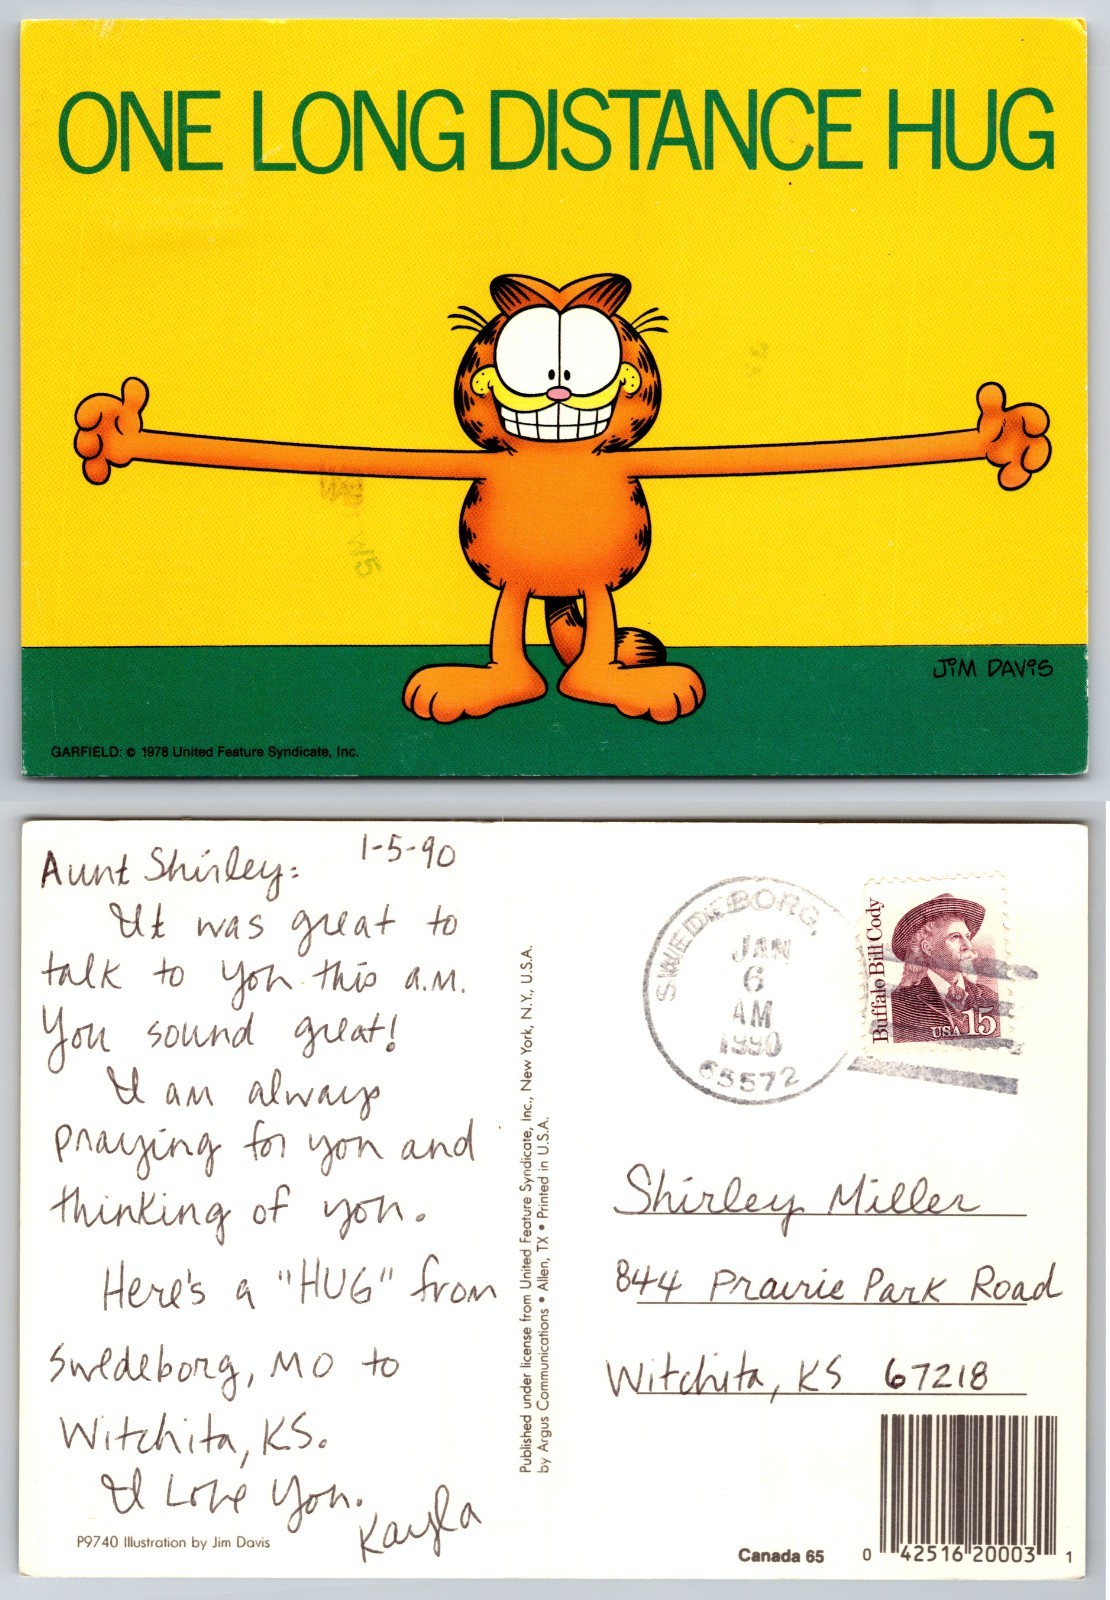 ONE LONG DISTANCE HUG
JIM DAVIS
GARFIELD: © 1978 United Feature Syndicate, Inc.
1-5-90
Aunt Shirley:
It was great to
talk to you this a.m.
You sound great!
I am always
praying for you and
thinking of you.
Here's a "HUG" from
Swedeborg, MO to
Witchita, KS.
I Love You.
Kayla
P9740 Illustration by Jim Davis
Published under license from United Feature Syndicate, Inc., New York, N.Y., U.S.A.
by Argus Communications • Allen, TX • Printed in U.S.A.
SWEDEBORG,
JAN
6
AM
1990
65572
Buffalo Bill Cody
USA 15
Shirley Miller
844 Prairie Park Road
Witchita, KS 67218
Canada 65
0 42516 20003 1